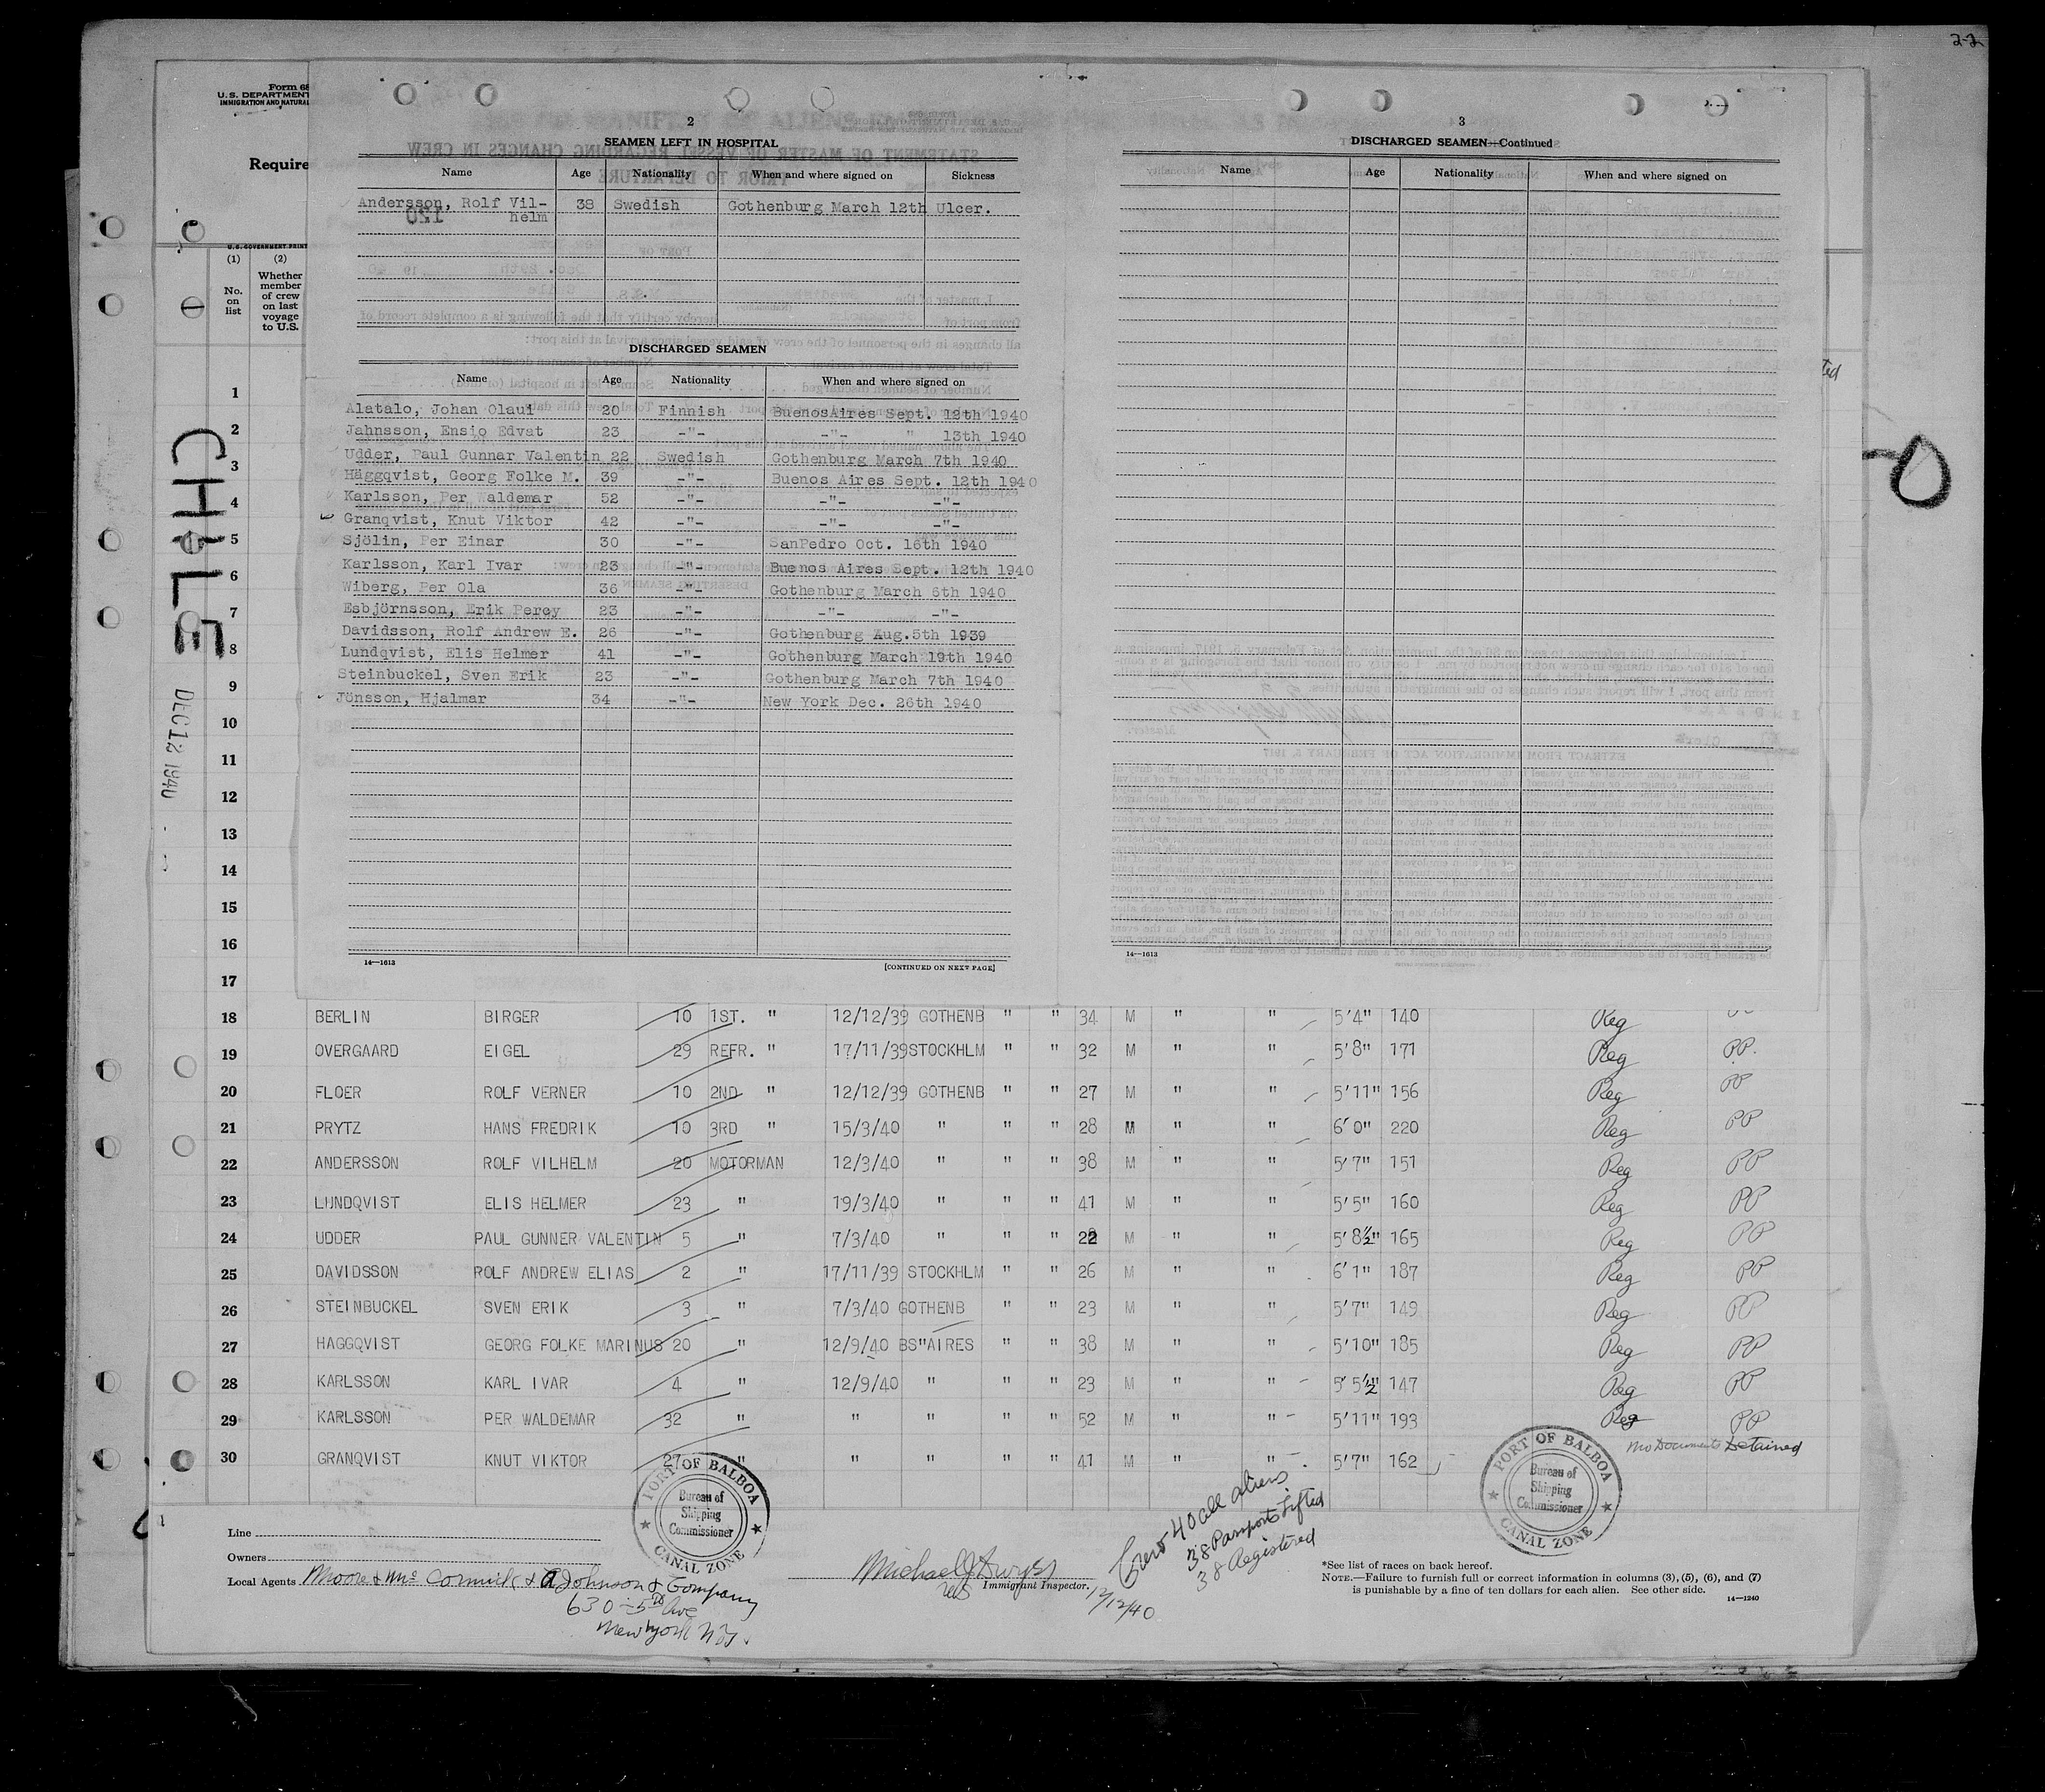 2-2
Form 68
U. S. DEPARTMENT
IMMIGRATION AND NATURAL
Require
U. S. GOVERNMENT PRINT
(1) (2)
No. on list
Whether member of crew on last voyage to U.S.
CHILE
DEC 12 1940
2
SEAMEN LEFT IN HOSPITAL
Name Age Nationality When and where signed on Sickness
Andersson, Rolf Vil- 38 Swedish Gothenburg March 12th Ulcer.
helm
DISCHARGED SEAMEN
Name Age Nationality When and where signed on
Alatalo, Johan Olaui 20 Finnish BuenosAires Sept. 12th 1940
Jahnsson, Ensio Edvat 23 -"- -"- " 13th 1940
Udder, Paul Gunnar Valentin 22 Swedish Gothenburg March 7th 1940
Häggqvist, Georg Folke M. 39 -"- Buenos Aires Sept. 12th 1940
Karlsson, Per Waldemar 52 -"- -"- -"-
Granqvist, Knut Viktor 42 -"- -"- -"-
Sjölin, Per Einar 30 -"- SanPedro Oct. 16th 1940
Karlsson, Karl Ivar 23 -"- Buenos Aires Sept. 12th 1940
Wiberg, Per Ola 36 -"- Gothenburg March 6th 1940
Esbjörnsson, Erik Percy 23 -"- -"- -"-
Davidsson, Rolf Andrew E. 26 -"- Gothenburg Aug.5th 1939
Lundqvist, Elis Helmer 41 -"- Gothenburg March 19th 1940
Steinbuckel, Sven Erik 23 -"- Gothenburg March 7th 1940
Jönsson, Hjalmar 34 -"- New York Dec. 26th 1940
14—1613 [CONTINUED ON NEXT PAGE]
3
DISCHARGED SEAMEN—Continued
Name Age Nationality When and where signed on
14—1613
1
2
3
4
5
6
7
8
9
10
11
12
13
14
15
16
17
18 BERLIN BIRGER 10 1ST. " 12/12/39 GOTHENB " " 34 M " " 5'4" 140 Reg
19 OVERGAARD EIGEL 29 REFR. " 17/11/39 STOCKHLM " " 32 M " " 5'8" 171 Reg P.P.
20 FLOER ROLF VERNER 10 2ND " 12/12/39 GOTHENB " " 27 M " " 5'11" 156 Reg PP
21 PRYTZ HANS FREDRIK 10 3RD " 15/3/40 " " " 28 M " " 6'0" 220 Reg PP
22 ANDERSSON ROLF VILHELM 20 MOTORMAN 12/3/40 " " " 38 M " " 5'7" 151 Reg PP
23 LUNDQVIST ELIS HELMER 23 " 19/3/40 " " " 41 M " " 5'5" 160 Reg PP
24 UDDER PAUL GUNNER VALENTIN 5 " 7/3/40 " " " 22 M " " 5'8½" 165 Reg PP
25 DAVIDSSON ROLF ANDREW ELIAS 2 " 17/11/39 STOCKHLM " " 26 M " " 6'1" 187 Reg PP
26 STEINBUCKEL SVEN ERIK 3 " 7/3/40 GOTHENB " " 23 M " " 5'7" 149 Reg PP
27 HAGGQVIST GEORG FOLKE MARINUS 20 " 12/9/40 BS"AIRES " " 38 M " " 5'10" 185 Reg PP
28 KARLSSON KARL IVAR 4 " 12/9/40 " " " 23 M " " 5'5½" 147 Reg PP
29 KARLSSON PER WALDEMAR 32 " " " " " 52 M " " 5'11" 193 Reg PP
30 GRANQVIST KNUT VIKTOR 27 " " " " " 41 M " " 5'7" 162 No Documents Detained
PORT OF BALBOA
Bureau of Shipping Commissioner
CANAL ZONE
PORT OF BALBOA
Bureau of Shipping Commissioner
CANAL ZONE
Crew 40 all aliens
38 Passports Lifted
38 Registered
12/12/40
Line
Owners
Local Agents Moore & McCormick & A Johnson & Company
630-5th Ave
New York N.Y.
Immigrant Inspector.
*See list of races on back hereof.
NOTE.—Failure to furnish full or correct information in columns (3), (5), (6), and (7)
is punishable by a fine of ten dollars for each alien. See other side.
14—1240